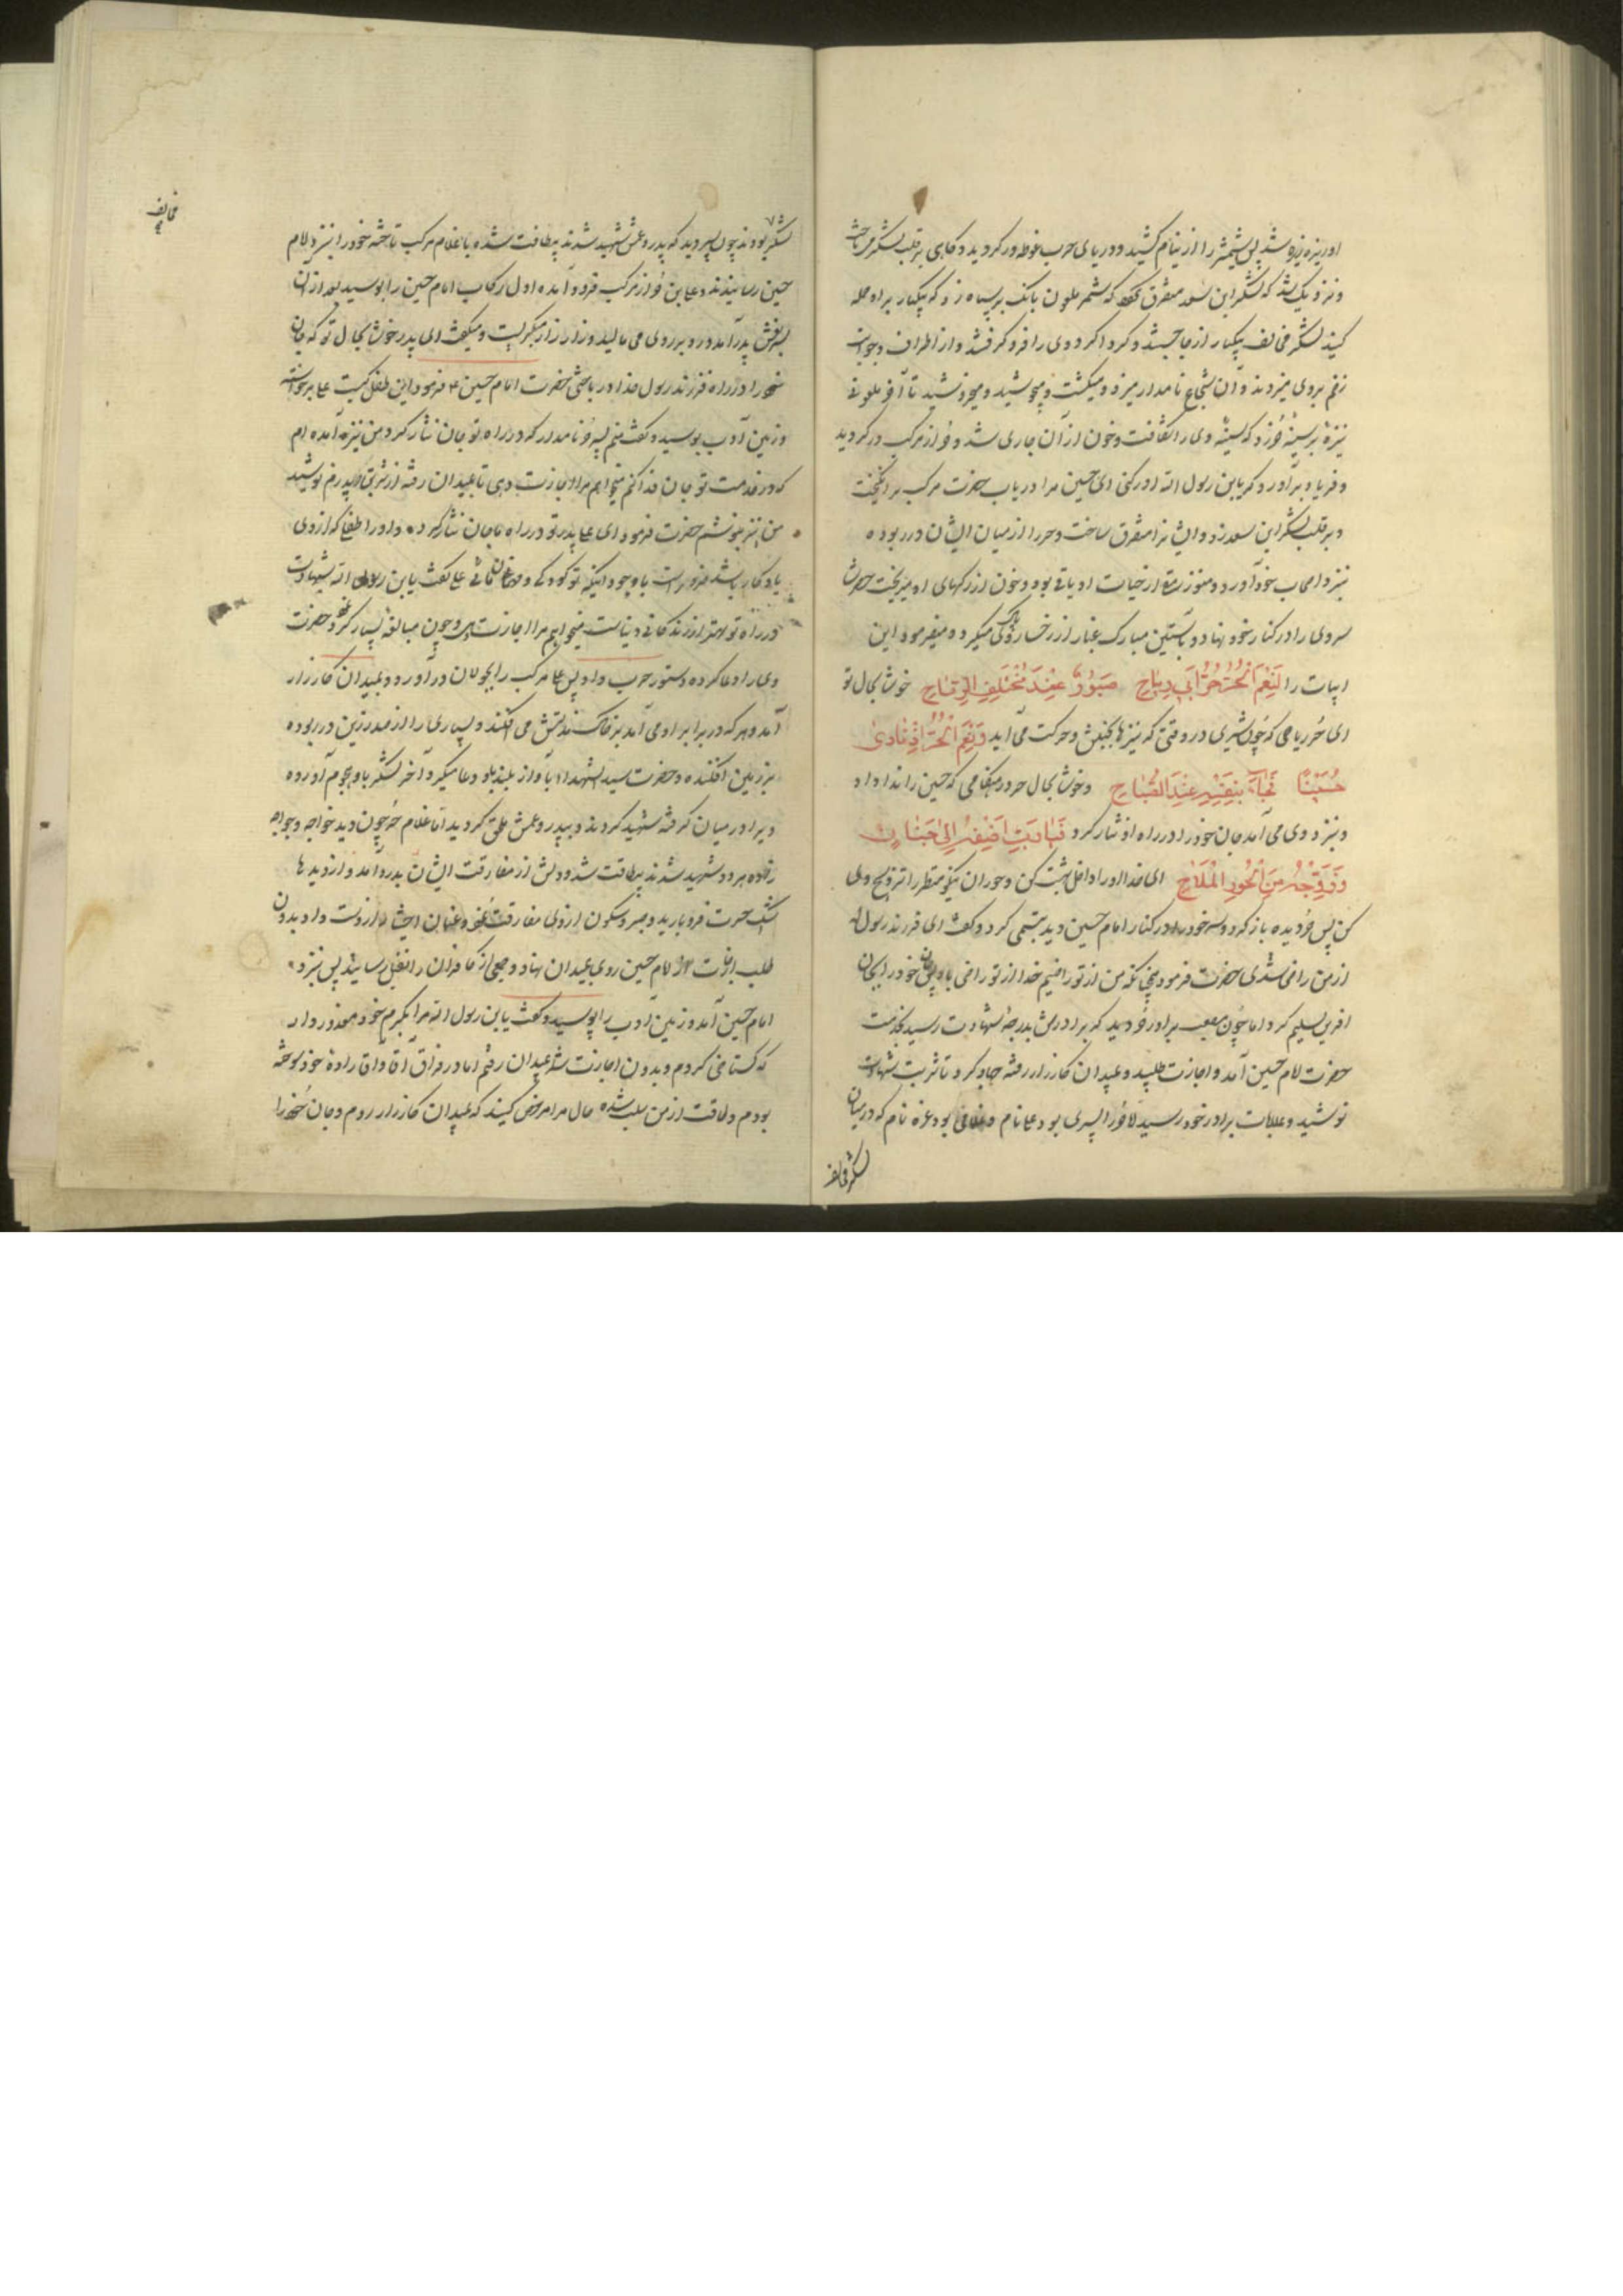 او ریزه ریزه شد پس شمشیر را از نیام کشید و در یای حرب غوطه ور گردید و گاهی بر قلب لشکر می تاخت
و نزدیک شد که لشکر ابن سعد متفرق که شمر ملعون بانک بر سپاه زد که یکبار براو حمله
کنید لشکر مخالف یکبار از جا جستند و گرداگرد وی را فرو گرفتند و از اطراف و جوانب
زخم بروی میزدند و آن شجاع نامدار میزد و میکشت و میجوشید و میخروشید تا آخر ملعونی
نیزهٔ بر سینهٔ حُر زد که سینهٔ وی را شکافت و خون از آن جاری شد و حُر از مرکب در گردید
و فریاد برآورد که یابن رسول الله ادرکنی ای حسین مرا دریاب حضرت مرکب برانگیخت
و بر قلب لشکر ابن سعد زد و ایشانرا متفرق ساخت و حر را از میان ایشان در ربوده
بنزد اصحاب خود آورد و هنوز رمقی از حیات او باقی بود و خون از رگهای او میریخت حضرت
سر وی را در کنار خود نهاد و بآستین مبارک غبار از رخسار پاک وی میگرد و میفرمود این
ابیات را لَنِعْمَ الْحُرُّ حُرُّ بَنی رِیاحِ صَبُورٌ عِنْدَ مُخْتَلَفِ الرِّمَاحِ خوشا بحال تو
ای حُر ریاحی که چون شیری در وقتی که نیزها بجنبش و حرکت می آید وَنِعْمَ الْحُرُّ اِذْ نَادیٰ
حُسَیْنًا فَجَادَ بِنَفْسِهِ عِنْدَ الصَّبَاحِ و خوشا بحال حر در هنگامی که حسین را ندا داد
و بنزد وی می آمد جان خود را در راه او نثار کرد فَیَا رَبِّ اَضِفْهُ اِلیٰ جَنَانٍ
وَزَوِّجْهُ مِنَ الْحُورِ الْمِلَاحِ ای خدا او را داخل بهشت کن و حوران نیکو منظر را تزویج وی
کن پس حُر دیده باز کرد و سر خود را در کنار امام حسین دید تبسمی کرد و گفت ای فرزند رسول
از من راضی شدی حضرت فرمود من از تو راضیم خدا از تو راضی باد پس جان خود را بجان
آفرین تسلیم کرد اما چون مصعب برادر حُر دید که برادرش بدرجهٔ شهادت رسید بخدمت
حضرت امام حسین آمد و اجازت طلبید و بمیدان کارزار رفته جهاد کرد تا شربت شهادت
نوشید و بملاقات برادر خود رسید اما حُر را پسری بود علی نام و غلامی بود غره نام که در میان
لشکر مخالف
مخالف
لشکر بودند چون پسر دید که پدر و عمش شهید شدند بیطاقت شده با غلام مرکب تاخته خود را بنزد امام
حسین رسانیدند و علی بن حُر از مرکب فرود آمده اول رکاب امام حسین را بوسید بعد از آن
بسر نعش پدر آمد و رو بر روی می مالید و زار زار میگریست و میگفت ای پدر خوشا بحال تو که جان
خود را در راه فرزند رسول خدا در باختی حضرت امام حسین ع فرمود این طفل کیست علی برخواسته
و زمین ادب بوسید و گفت منم پسر حُر نامدار که در راه تو جان نثار کرد من نیز آمده ام
که در قدمت تو جان فدا کنم میخواهم مرا اجازت دهی تا بمیدان رفته از شربتی که پدرم نوشید
من نیز بنوشم حضرت فرمود ای علی پدر تو در راه ما جان نثار کرده و او را طفلی که از وی
یادگار باشد ضرور است با وجود اینکه تو کودکی علی گفت یابن رسول الله شهادت
در راه تو بهتر از زندگانی دنیاست میخواهم مرا اجازت دهی و چون مبالغه بسیار کرد حضرت
وی را دعا کرده دستور حرب داد پس علی مرکب را بجولان در آورد و بمیدان کارزار
آمد و هر که در برابر او می آمد بر خاک مذلتش می افکند و بسیاری را از صدر زین در ربوده
بر زمین افکنده و حضرت سید الشهداء بآواز بلند باو دعا میکرد آخر لشکر باو هجوم آورده
ویرا در میان گرفته شهید کردند و بپدر و عمش ملحق گردید اما غلام حُر چون دید خواجه و خواجه
زاده هر دو شهید شدند بیطاقت شد و دلش از مفارقت ایشان بدرد آمد و از دیدها
اشک حسرت فرو بارید و صبر و سکون از وی مفارقت نموده و عنان اختیار از دست داد بدون
طلب اجازت از امام حسین روی بمیدان نهاد و جمعی از کافران را بقتل رسانید پس بنزد
امام حسین آمد و زمین ادب را بوسید و گفت یابن رسول الله مرا بکرم خود معذور دار
که گستاخی کردم و بدون اجازت شما بمیدان رفتم اما در فراق آقا و آقا زادهٔ خود سوخته
بودم و طاقت از من سلب شده حال مرا مرخص کنید که بمیدان کارزار روم و جان خود را